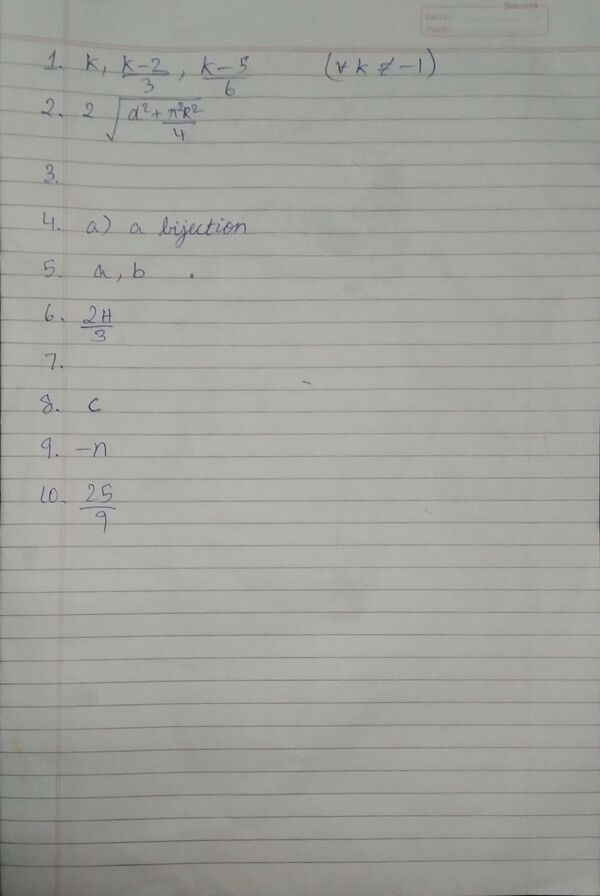 DATE:
PAGE:
1. k, k-2/3, k-5/6 (∀ k ≠ -1)
2. 2 √(d²+π²R²/4)
3.
4. a) a bijection
5. a, b .
6. 2H/3
7.
8. c
9. -n
10. 25/9